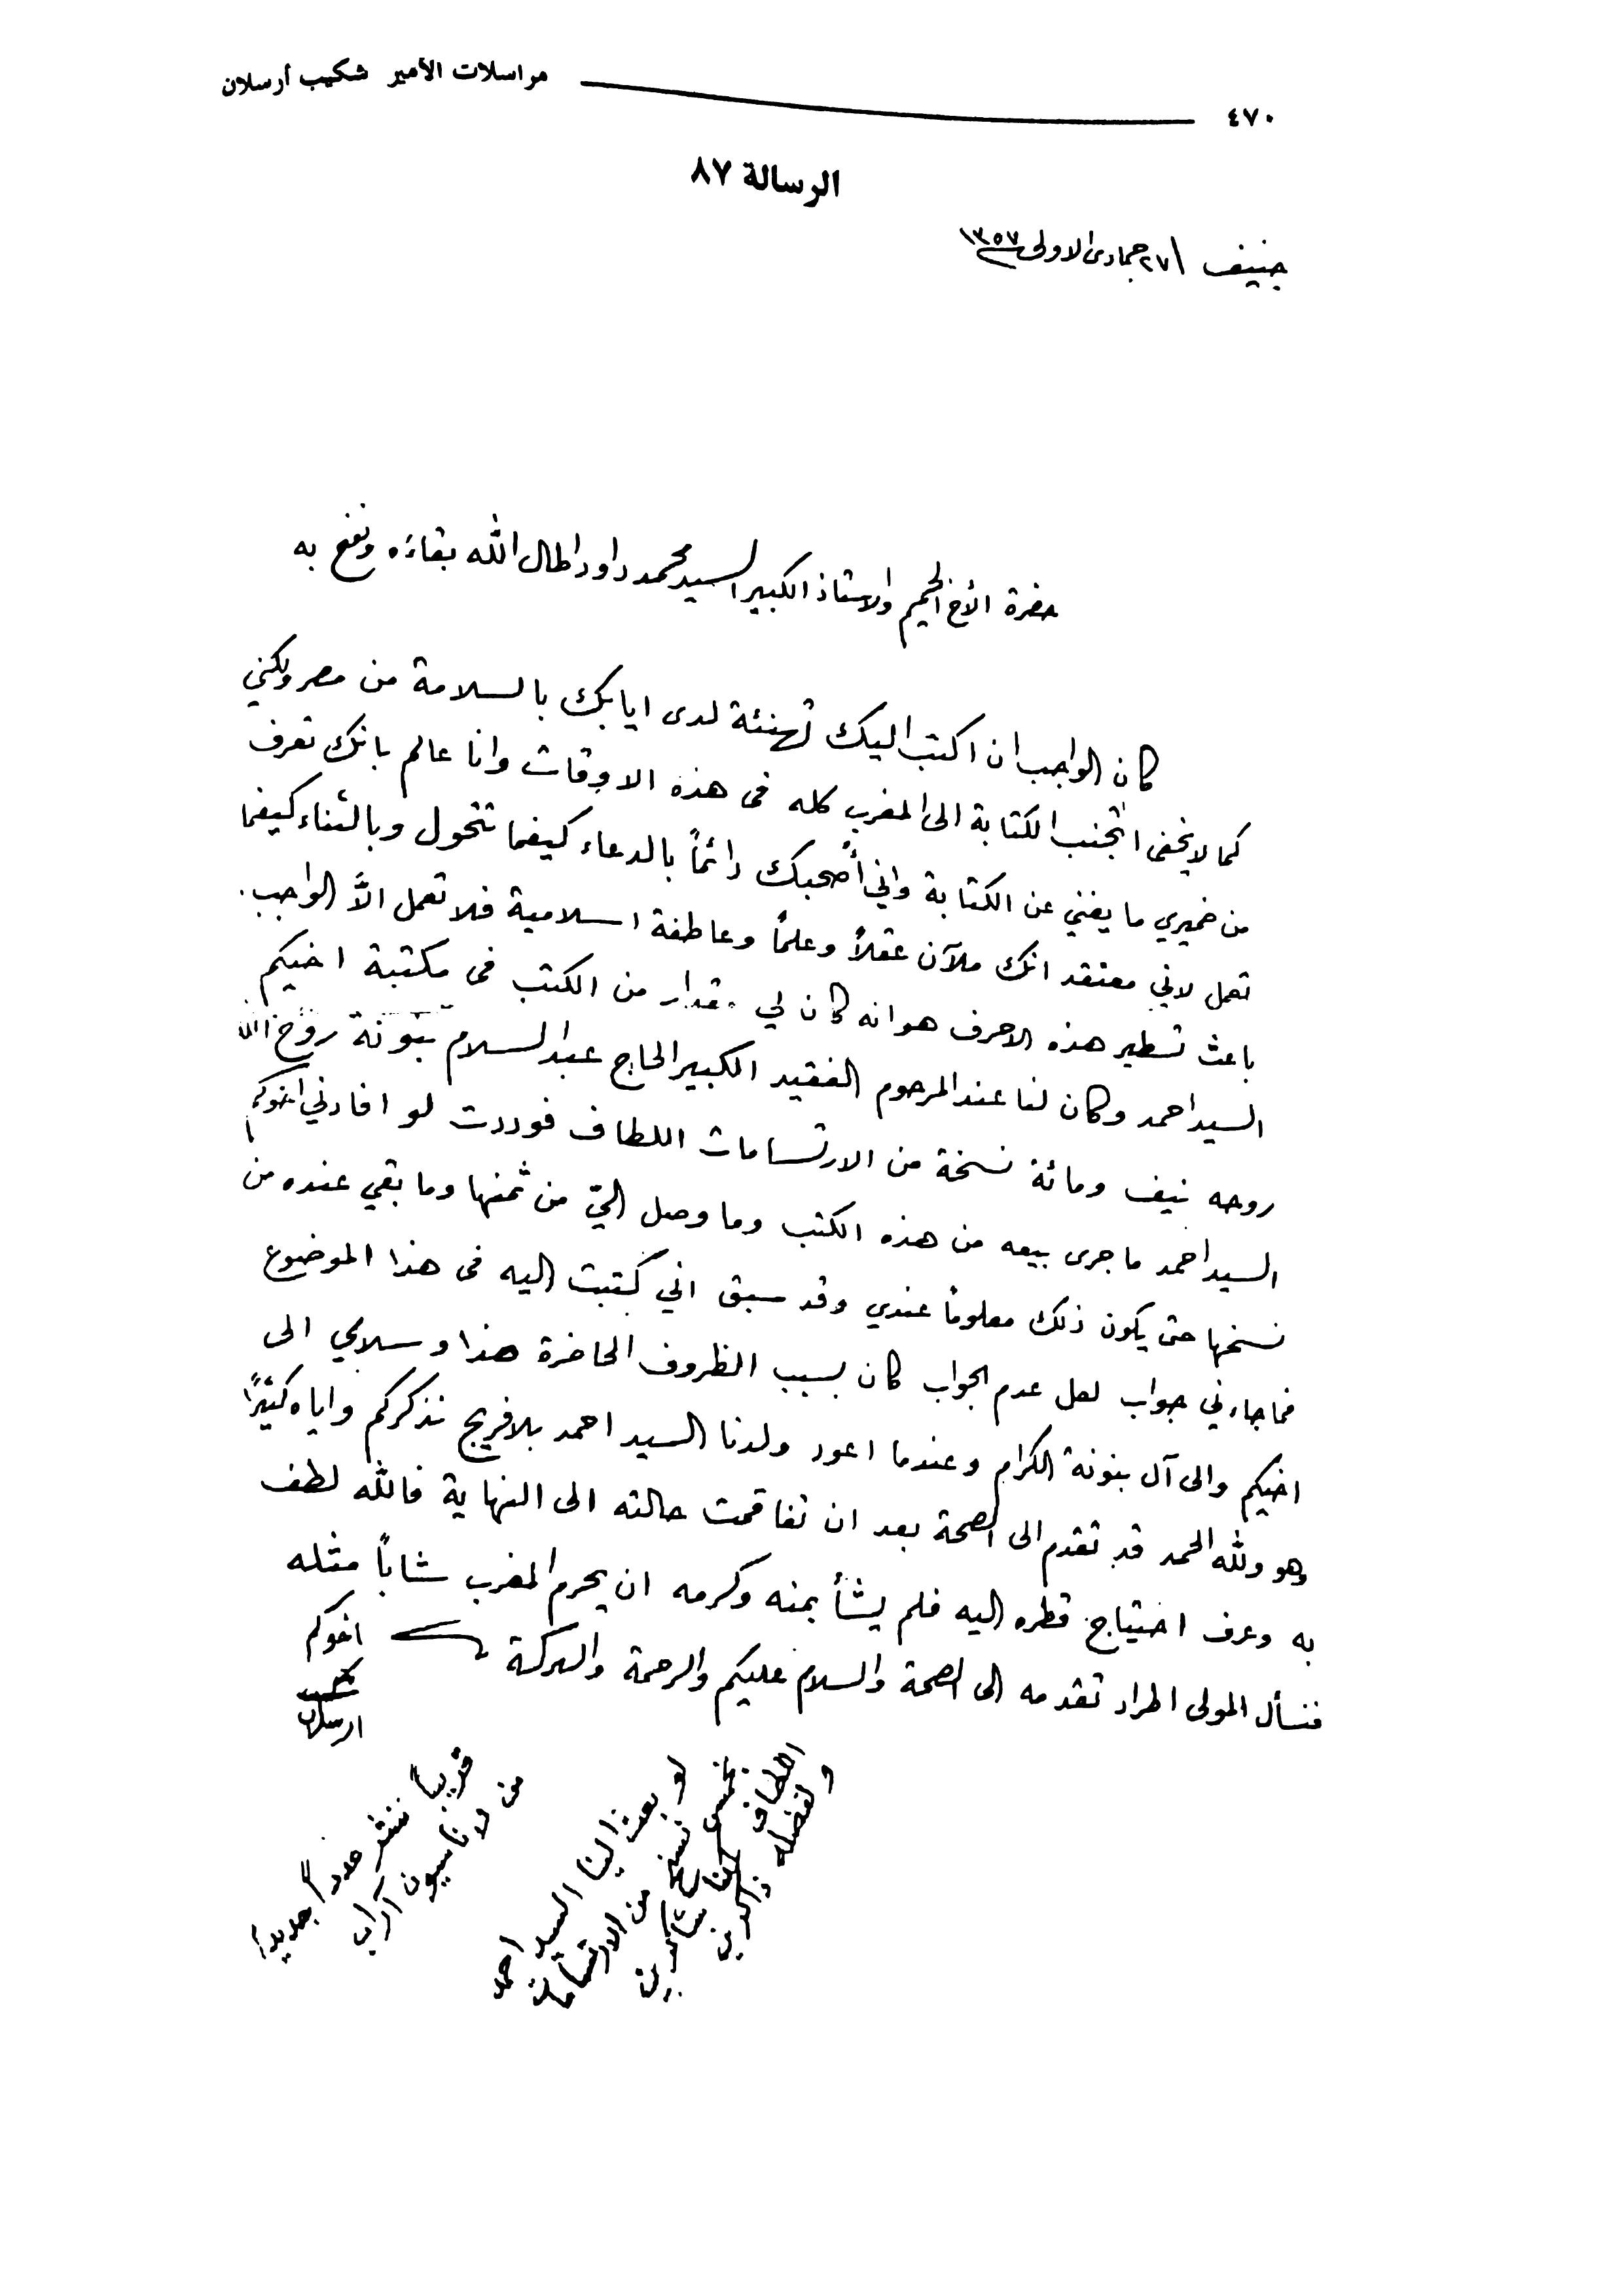 ٤٧٠ مراسلات الأمير شكيب أرسلان
الرسالة ٨٧
جنيف ٢٧ جمادى الاولى ١٣٥٧
حضرة الأخ الحميم والاستاذ الكبير السيد محمد داود اطال الله بقاءه ونفع به
كان الواجب ان اكتب اليك تهنئة لدى ايابك بالسلامة من مصر ولكني
كما لا يخفى اتجنب الكتابة الى المغرب كله في هذه الاوقات وانا عالم بانك تعرف
من ضميري ما يغني عن الكتابة واني أصحبك دائماً بالدعاء كيفما تتحول وبالثناء كيفما
تعمل لاني معتقد انك ملآن عقلاً وعلماً وعاطفة اسلامية فلا تعمل الاَّ الواجب.
باعث تسطير هذه الاحرف هو انه كان لي مقدار من الكتب في مكتبة اخيكم
السيد احمد وكان لنا عند المرحوم الفقيد الكبير الحاج عبد السلام بنونة روَّح الله
روحه نيف ومائة نسخة من الارتسامات اللطاف فوددت لو افادني اخوكم
السيد احمد ما جرى بيعه من هذه الكتب وما وصل اليّ من ثمنها وما بقي عنده من
نسخها حتى يكون ذلك معلوماً عندي وقد سبق اني كتبت اليه في هذا الموضوع
فما جاءني جواب لعل عدم الجواب كان بسبب الظروف الحاضرة هذا وسلامي الى
اخيكم والى آل بنونة الكرام وعندما اعود ولدنا السيد احمد بلافريج نذكركم واياه كثيراً
وهو ولله الحمد قد تقدم الى الصحة بعد ان تفاقمت حالته الى النهاية فالله لطف
به وعرف احتياج قطره اليه فلم يشأ بمنه وكرمه ان يحرم المغرب شاباً مثله
فنسأل المولى اطراد تقدمه الى الصحة والسلام عليكم والرحمة والبركة
اخوكم
شكيب
ارسلان
قريباً ننشر عدداً جديداً
من لاناسيون آراب
لو بعث الينا السيد احمد
بخمس نسخ من الارتسامات
اللطاف كنا شاكرين
ولفضله ذاكرين